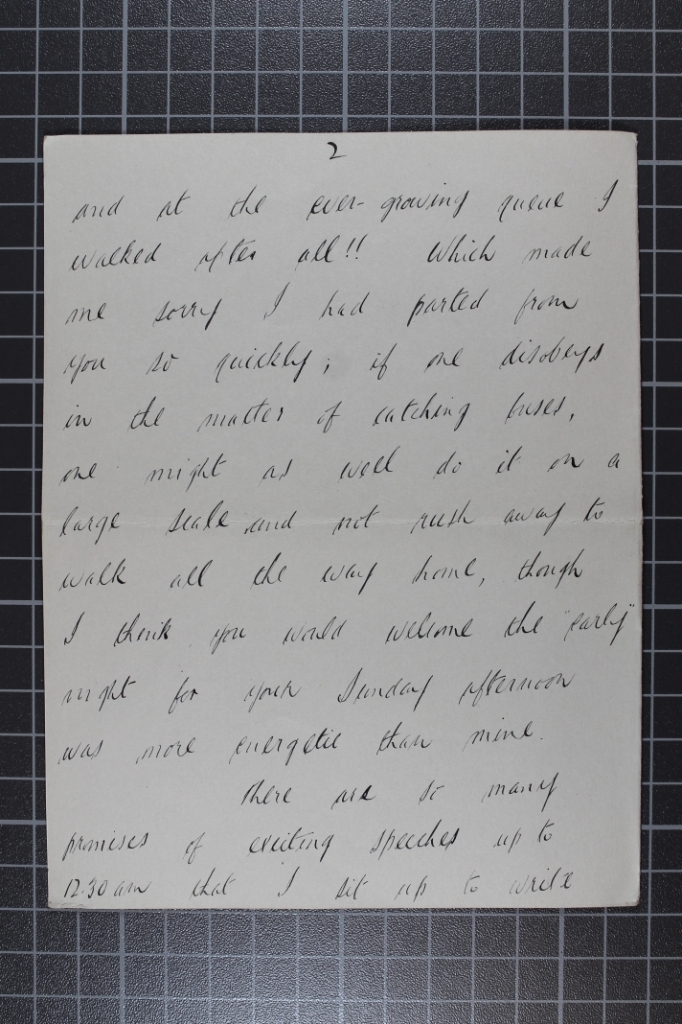 2
and at the ever-growing queue I
walked after all!! Which made
me sorry I had parted from
you so quickly; if one disobeys
in the matter of catching buses,
one might as well do it on a
large scale and not rush away to
walk all the way home, though
I think you would welcome the "early"
night for your Sunday afternoon
was more energetic than mine.
There are so many
promises of exciting speeches up to
12.30 am that I sit up to write